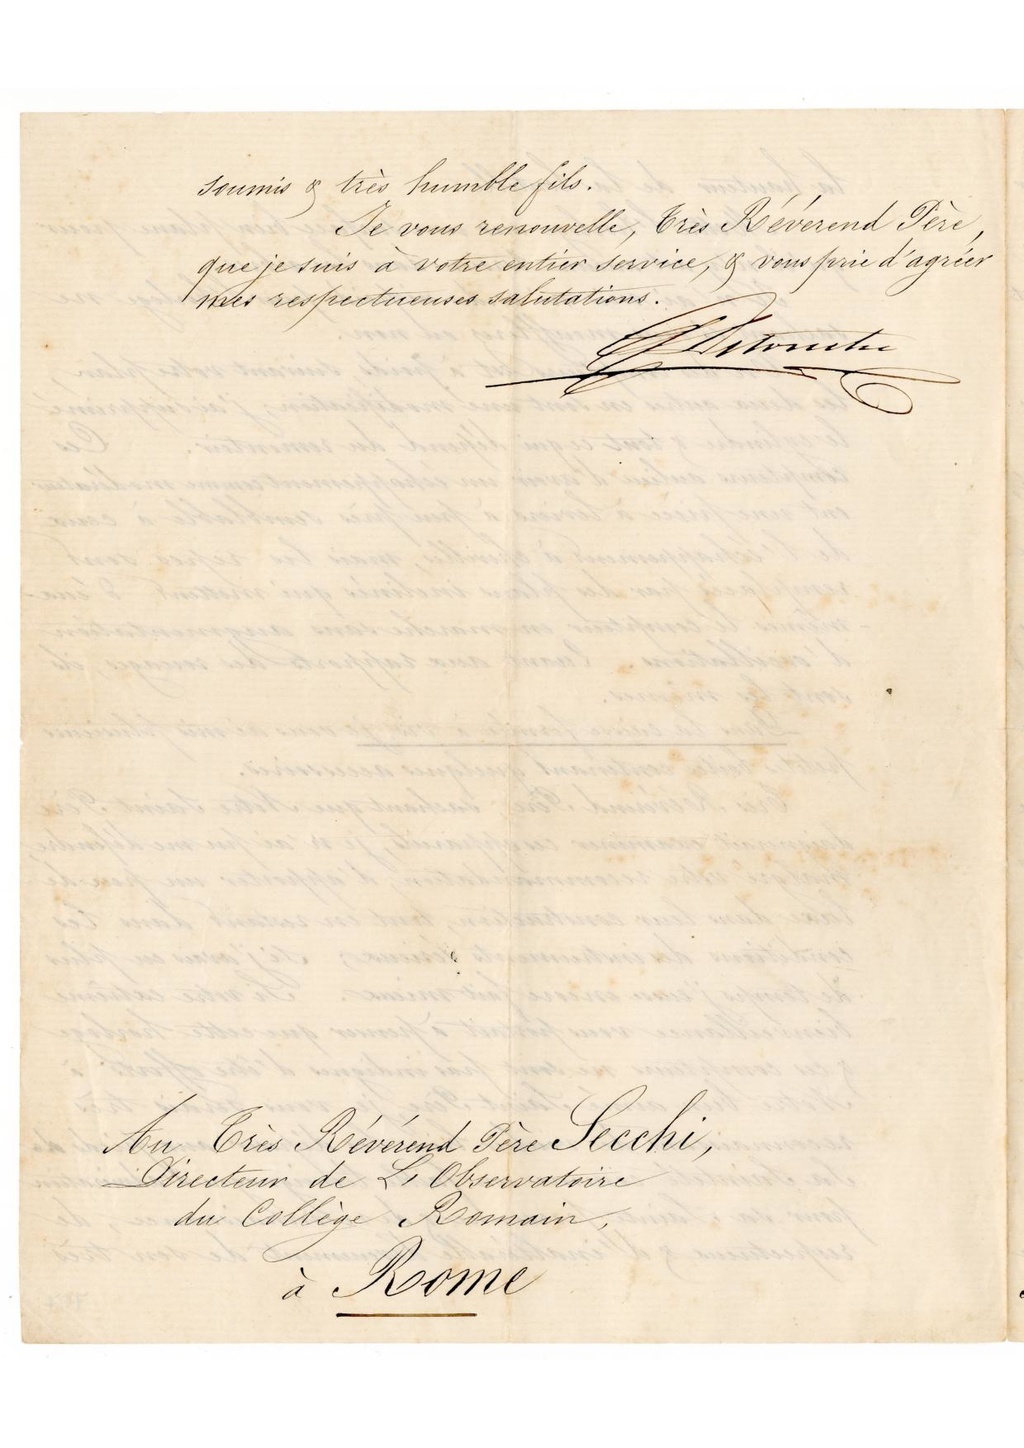 soumis & très humble fils.
Je vous renouvelle, Très Révérend Père,
que je suis à votre entier service, & vous prie d'agréer
mes respectueuses salutations.
Detouche
Au Très Révérend Père Secchi,
Directeur de L'Observatoire
du Collège Romain,
à Rome